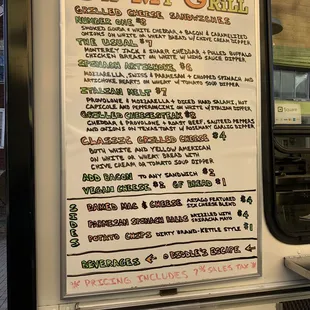 MY GRILL
GRILLED CHEESE SANDWICHES
NUMBER ONE $8
SMOKED GOUDA + WHITE CHEDDAR + BACON & CARAMELIZED
ONIONS ON WHITE OR WHEAT BREAD W/ CHIVE CREAM DIPPER
THE USUAL $7
MONTEREY JACK & SHARP CHEDDAR + PULLED BUFFALO
CHICKEN BREAST ON WHITE W/ WING SAUCE DIPPER
SPINACH ARTICHOKE $8
MOZZARELLA, SWISS & PARMESAN + CHOPPED SPINACH AND
ARTICHOKE HEARTS ON WHEAT W/ TOMATO SOUP DIPPER
ITALIAN MELT $7
PROVOLONE & MOZZARELLA + DICED HARD SALAMI, HOT
CAPICOLE AND PEPPERONCINI ON WHITE W/ ITALIAN DIPPER
GRILLED CHEESESTEAK $8
CHEDDAR & PROVOLONE + ROAST BEEF, SAUTEED PEPPERS
AND ONIONS ON TEXAS TOAST W/ ROSEMARY GARLIC DIPPER
CLASSIC GRILLED CHEESE $4
BOTH WHITE AND YELLOW AMERICAN
ON WHITE OR WHEAT BREAD WITH
CHIVE CREAM OR TOMATO SOUP DIPPER
ADD BACON TO ANY SANDWICH $2
VEGAN CHEESE $2 GF BREAD $1
SIDES
BAKED MAC & CHEESE ASIAGO FEATURED SIX CHEESE BLEND $4
PARMESAN SPINACH BALLS DRIZZLED WITH SRIRACHA MAYO $4
POTATO CHIPS DIRTY BRAND-KETTLE STYLE $1
BEVERAGES
PRICING INCLUDES 7% SALES TAX
Square